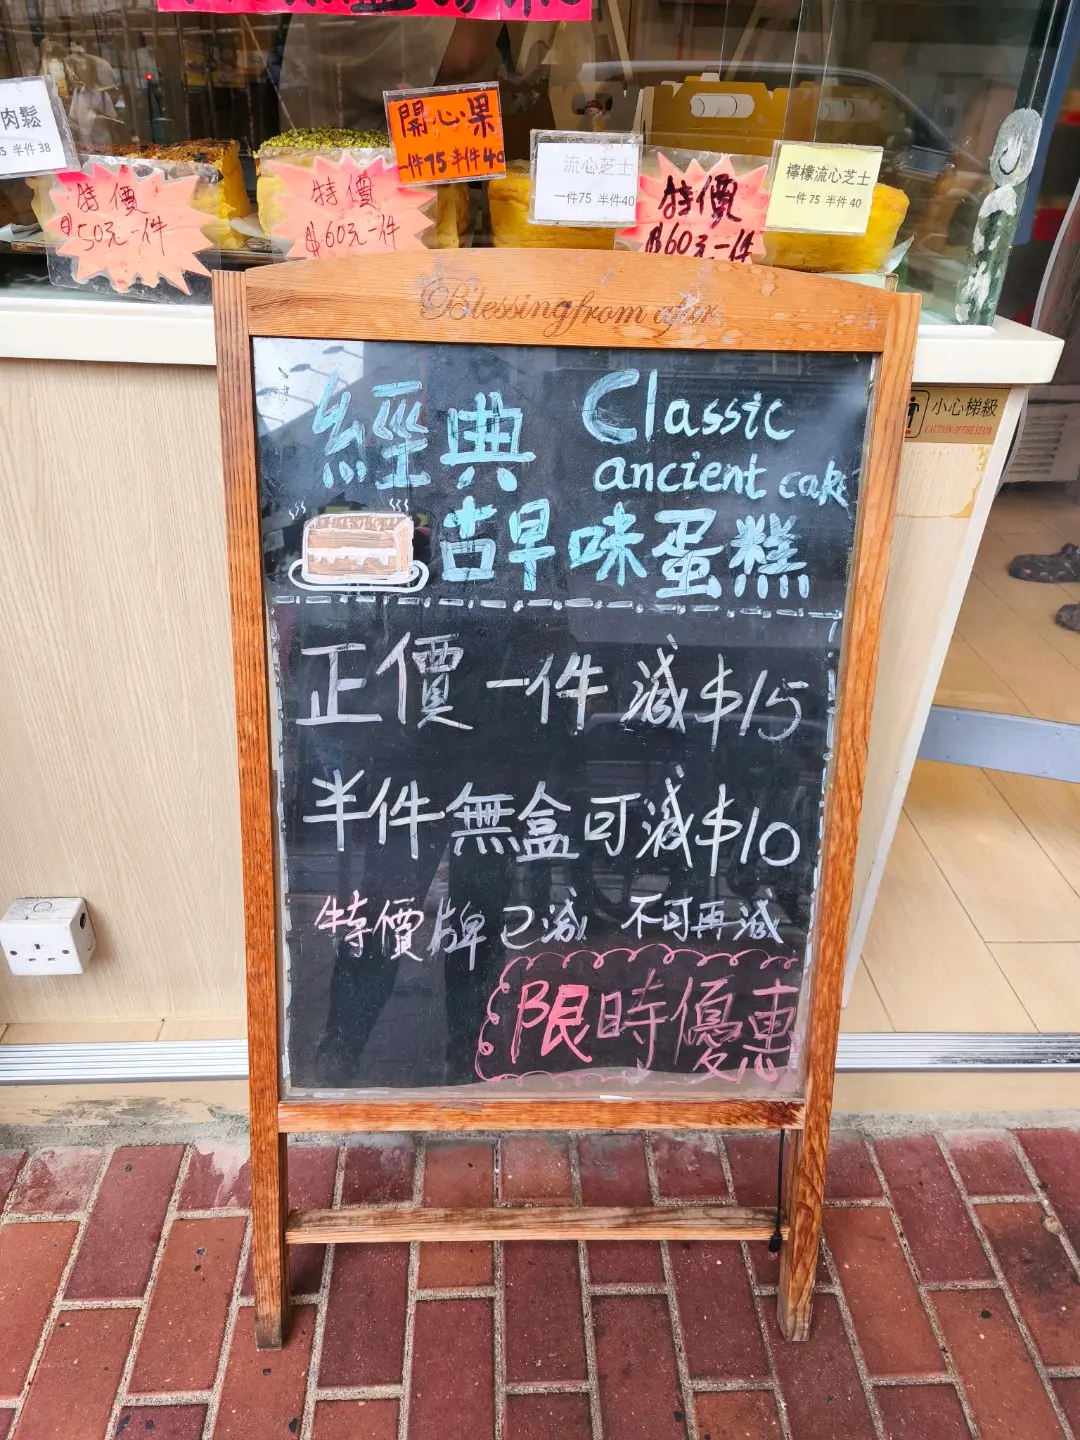 肉鬆
5 半件 38
特價
$50元一件
特價
$60元一件
開心果
一件75 半件40
流心芝士
一件75 半件40
特價
$60元一件
檸檬流心芝士
一件 75 半件 40
Blessing from afar
小心梯級
CAUTION OF THE STAIR
經典
Classic
ancient cake
古早味蛋糕
正價一件減$15
半件無盒可減$10
特價牌已減 不可再減
限時優惠